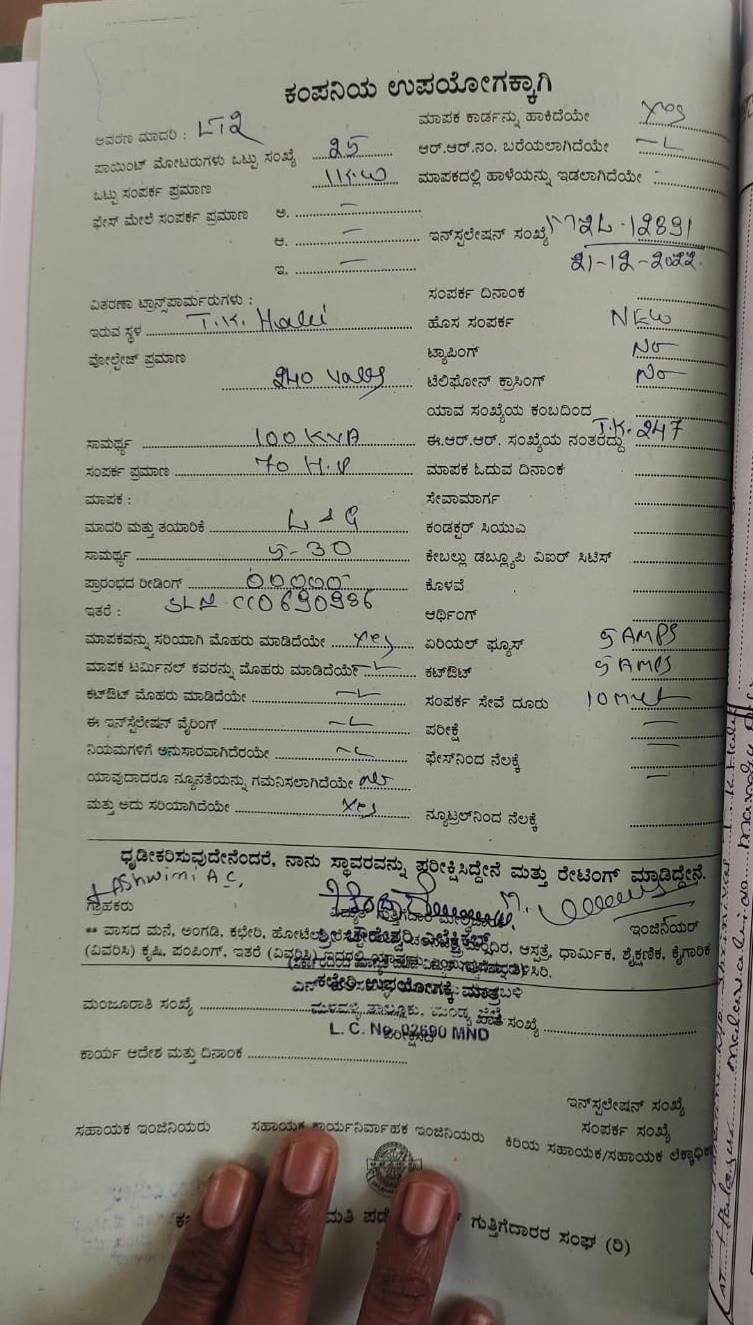 ಕಂಪನಿಯ ಉಪಯೋಗಕ್ಕಾಗಿ
ಆವರಣ ಮಾದರಿ : LT2
ಪಾಯಿಂಟ್ ಮೋಟರುಗಳು ಒಟ್ಟು ಸಂಖ್ಯೆ 25
ಒಟ್ಟು ಸಂಪರ್ಕ ಪ್ರಮಾಣ 1K.W
ಫೇಸ್ ಮೇಲೆ ಸಂಪರ್ಕ ಪ್ರಮಾಣ ಅ. —
ಆ. —
ಇ. —
ವಿತರಣಾ ಟ್ರಾನ್ಸ್‌ಪಾರ್ಮರುಗಳು :
ಇರುವ ಸ್ಥಳ T.K. Halli
ವೋಲ್ಟೇಜ್ ಪ್ರಮಾಣ
240 Volts
ಸಾಮರ್ಥ್ಯ 100 KVA
ಸಂಪರ್ಕ ಪ್ರಮಾಣ 70 H.P
ಮಾಪಕ :
ಮಾದರಿ ಮತ್ತು ತಯಾರಿಕೆ L & G
ಸಾಮರ್ಥ್ಯ 5-30
ಪ್ರಾರಂಭದ ರೀಡಿಂಗ್ 00000
ಇತರೆ : SLN CC0690986
ಮಾಪಕವನ್ನು ಸರಿಯಾಗಿ ಮೊಹರು ಮಾಡಿದೆಯೇ Yes
ಮಾಪಕ ಟರ್ಮಿನಲ್ ಕವರನ್ನು ಮೊಹರು ಮಾಡಿದೆಯೇ
ಕಟ್‌ಔಟ್ ಮೊಹರು ಮಾಡಿದೆಯೇ
ಈ ಇನ್‌ಸ್ಟಲೇಷನ್ ವೈರಿಂಗ್
ನಿಯಮಗಳಿಗೆ ಅನುಸಾರವಾಗಿದೆರಯೇ
ಯಾವುದಾದರೂ ನ್ಯೂನತೆಯನ್ನು ಗಮನಿಸಲಾಗಿದೆಯೇ No
ಮತ್ತು ಅದು ಸರಿಯಾಗಿದೆಯೇ Yes
ಮಾಪಕ ಕಾರ್ಡನ್ನು ಹಾಕಿದೆಯೇ Yes
ಆರ್.ಆರ್.ನಂ. ಬರೆಯಲಾಗಿದೆಯೇ
ಮಾಪಕದಲ್ಲಿ ಹಾಳೆಯನ್ನು ಇಡಲಾಗಿದೆಯೇ
ಇನ್‌ಸ್ಪಲೇಷನ್ ಸಂಖ್ಯೆ M2L.12891
21-12-2022
ಸಂಪರ್ಕ ದಿನಾಂಕ
ಹೊಸ ಸಂಪರ್ಕ NEW
ಟ್ಯಾಪಿಂಗ್ No
ಟೆಲಿಫೋನ್ ಕ್ರಾಸಿಂಗ್ No
ಯಾವ ಸಂಖ್ಯೆಯ ಕಂಬದಿಂದ
ಈ.ಆರ್.ಆರ್. ಸಂಖ್ಯೆಯ ನಂತರದ್ದು T.K. 247
ಮಾಪಕ ಓದುವ ದಿನಾಂಕ
ಸೇವಾಮಾರ್ಗ
ಕಂಡಕ್ಟರ್ ಸಿಯುಎ
ಕೇಬಲ್ಲು ಡಬ್ಲ್ಯೂಪಿ ವಿಐರ್ ಸಿಟಿಸ್
ಕೊಳವೆ
ಆರ್ಥಿಂಗ್
ಏರಿಯಲ್ ಫ್ಯೂಸ್ 5 AMPS
ಕಟ್‌ಔಟ್ 5 AMPS
ಸಂಪರ್ಕ ಸೇವೆ ದೂರು
ಪರೀಕ್ಷೆ —
ಫೇಸ್‌ನಿಂದ ನೆಲಕ್ಕೆ —
ನ್ಯೂಟ್ರಲ್‌ನಿಂದ ನೆಲಕ್ಕೆ
ಧೃಡೀಕರಿಸುವುದೇನೆಂದರೆ, ನಾನು ಸ್ಥಾವರವನ್ನು ಪರೀಕ್ಷಿಸಿದ್ದೇನೆ ಮತ್ತು ರೇಟಿಂಗ್ ಮಾಡಿದ್ದೇನೆ.
Ashwini A.C.
ಗ್ರಾಹಕರು
ಇಂಜಿನಿಯರ್
** ವಾಸದ ಮನೆ, ಅಂಗಡಿ, ಕಛೇರಿ, ಹೋಟೆಲ್ ಆಸ್ಪತ್ರೆ, ಧಾರ್ಮಿಕ, ಶೈಕ್ಷಣಿಕ, ಕೈಗಾರಿಕ
ಶ್ರೀ ಚೌಡೇಶ್ವರಿ ಎಲೆಕ್ಟ್ರಿಕಲ್ಸ್
(ವಿವರಿಸಿ) ಕೃಷಿ, ಪಂಪಿಂಗ್, ಇತರೆ (ವಿವರಿಸಿ)
ಕಛೇರಿ ಉಪಯೋಗಕ್ಕೆ ಮಾತ್ರ
ಮಂಜೂರಾತಿ ಸಂಖ್ಯೆ
ಮಳವಳ್ಳಿ ತಾಲ್ಲೂಕು, ಮಂಡ್ಯ ಜಿಲ್ಲೆ
ಸಂಖ್ಯೆ
L. C. No. 02690 MND
ಕಾರ್ಯ ಆದೇಶ ಮತ್ತು ದಿನಾಂಕ
ಇನ್‌ಸ್ಪಲೇಷನ್ ಸಂಖ್ಯೆ
ಸಂಪರ್ಕ ಸಂಖ್ಯೆ
ಸಹಾಯಕ ಇಂಜಿನಿಯರು ಸಹಾಯಕ ಕಾರ್ಯನಿರ್ವಾಹಕ ಇಂಜಿನಿಯರು ಕಿರಿಯ ಸಹಾಯಕ/ಸಹಾಯಕ ಲೆಕ್ಕಾಧಿಕ
ಗುತ್ತಿಗೆದಾರರ ಸಂಘ (ರಿ)